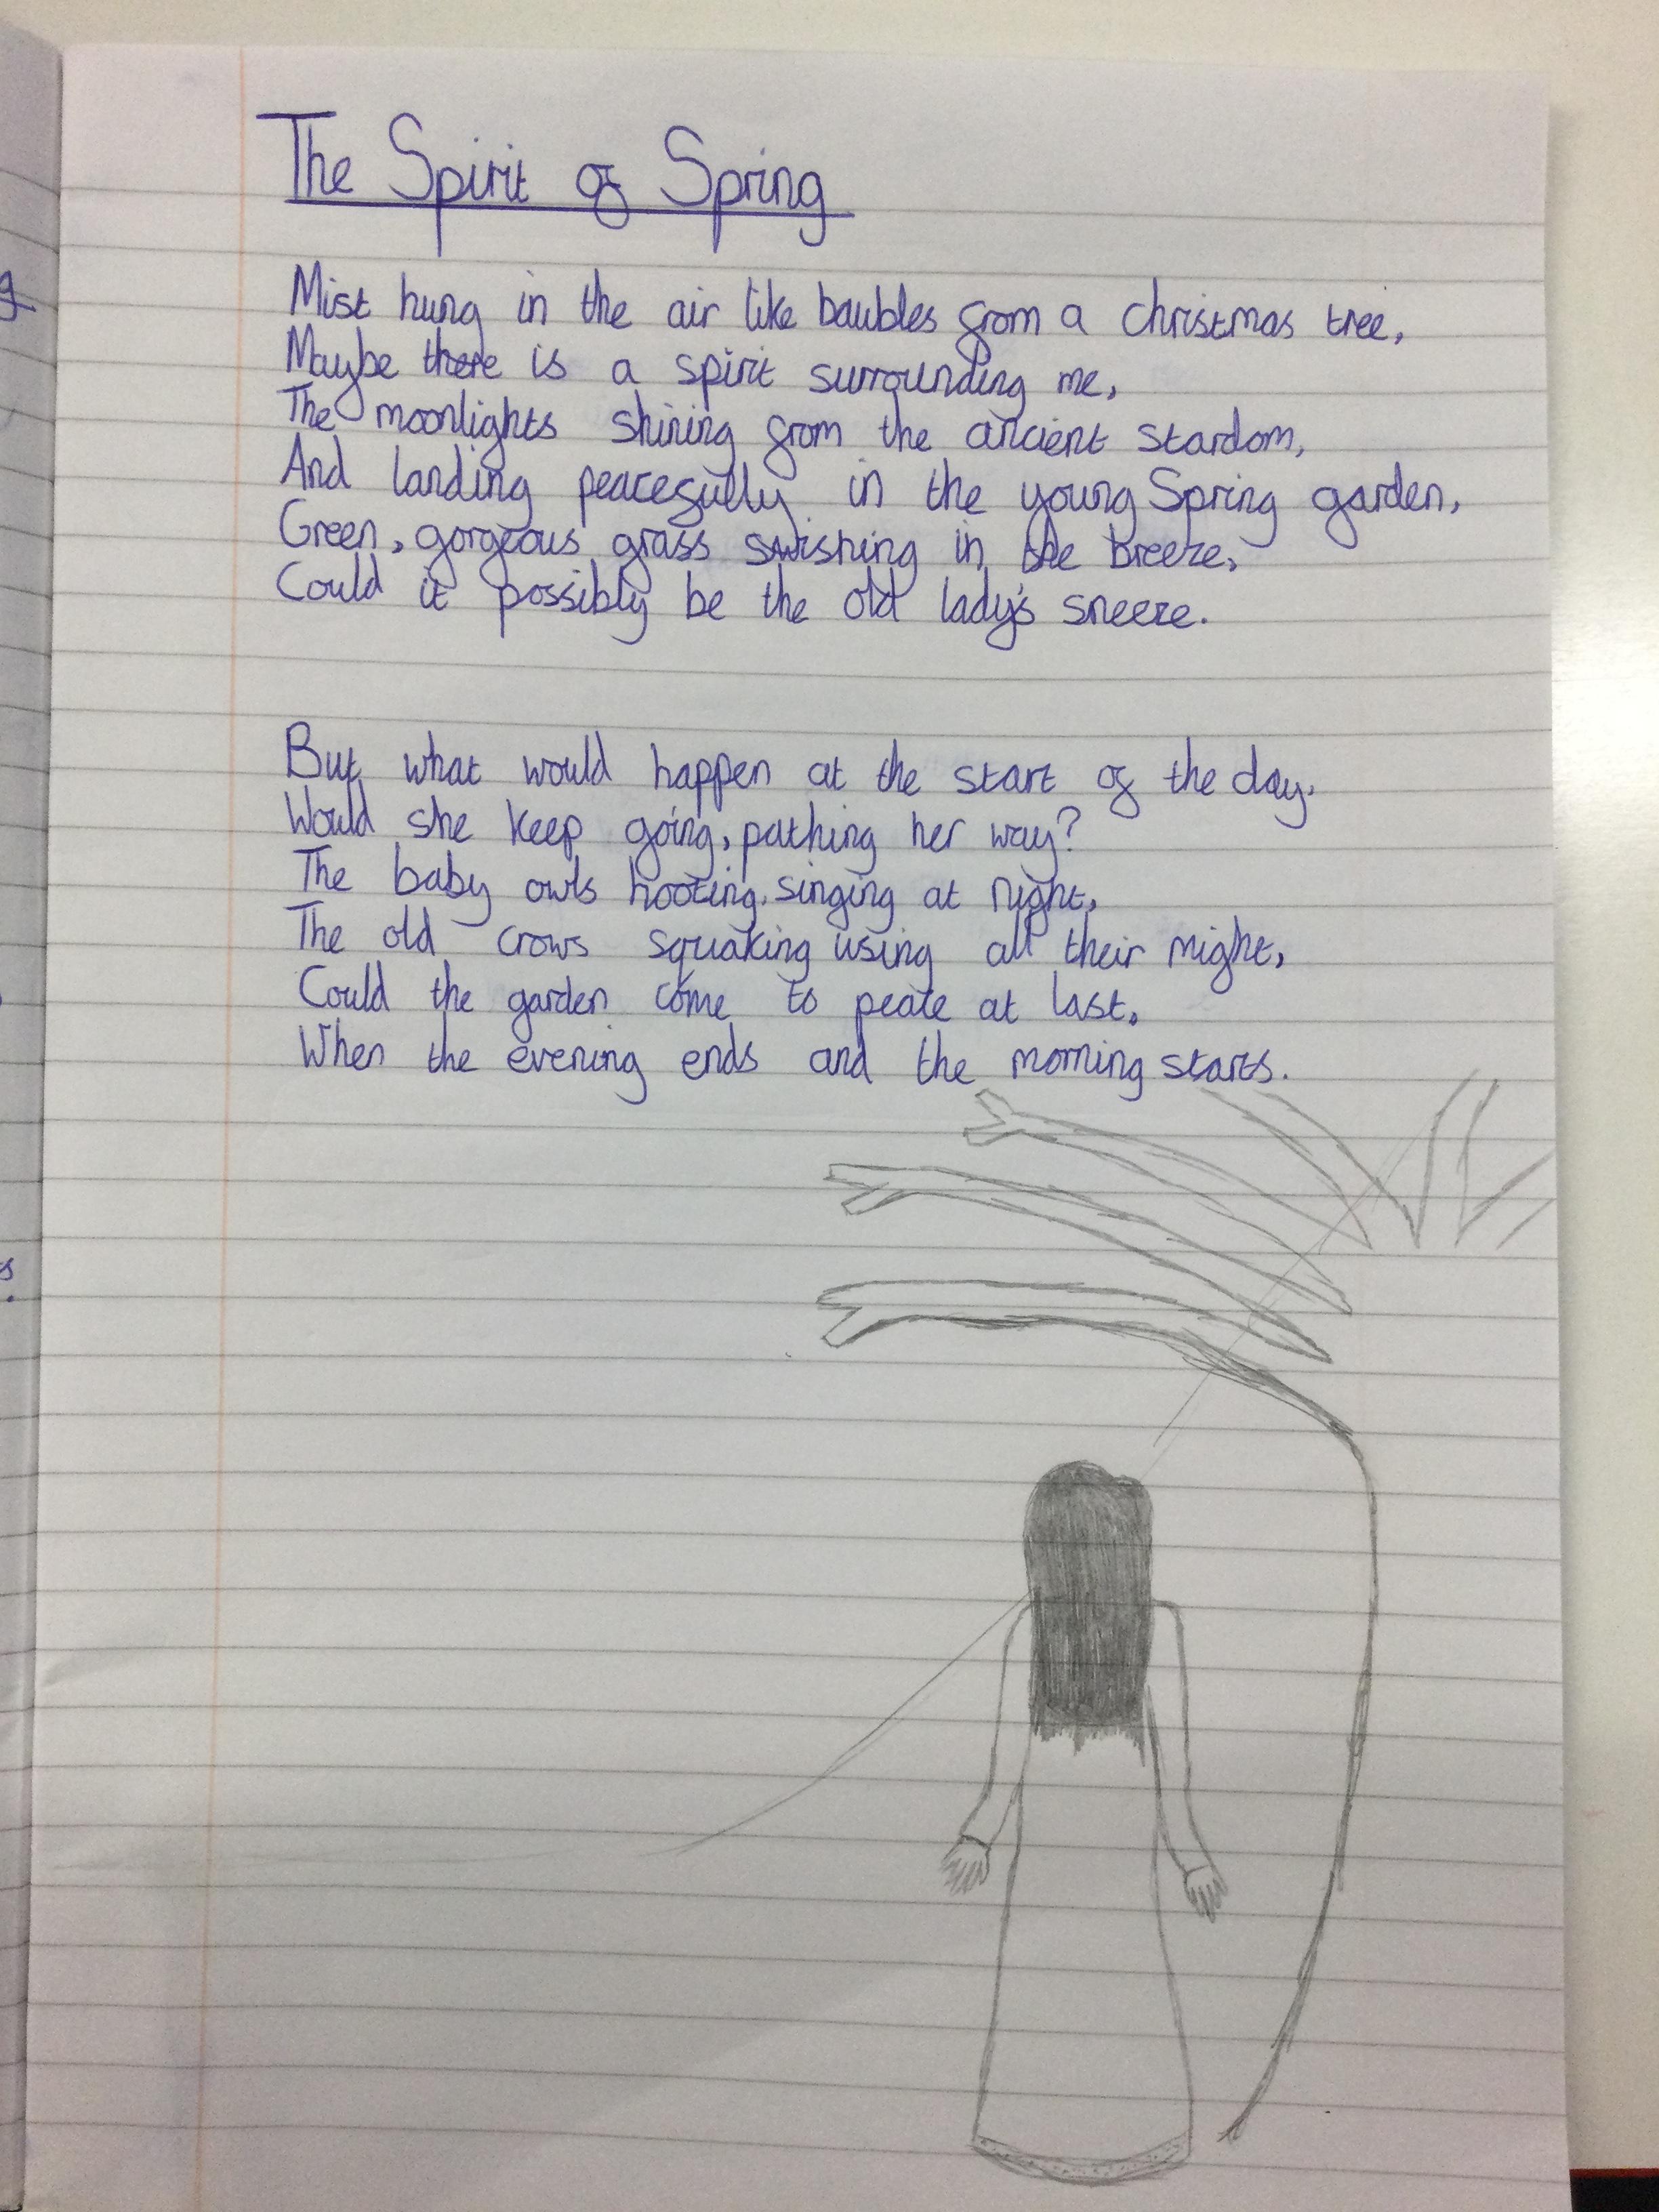 The Spirit of Spring
Mist hung in the air like baubles from a christmas tree,
Maybe there is a spirit surrounding me,
The moonlights shining from the ancient stardom,
And landing peacefully in the young Spring garden,
Green, gorgeous grass swishing in the breeze,
Could it possibly be the old lady's sneeze.
But what would happen at the start of the day,
Would she keep going, pathing her way?
The baby owls hooting, singing at night,
The old crows squaking using all their might,
Could the garden come to peace at last,
When the evening ends and the morning starts.